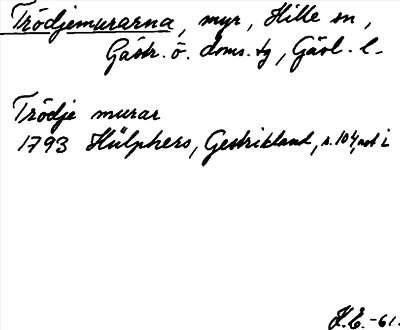 Trödjemurarna, myr, Hille sn,
Gästr. ö. doms. tg, Gävl. l.
Trödje murar
1793 Hülphers, Gestrikland, s. 104, not i
H.E. -61.